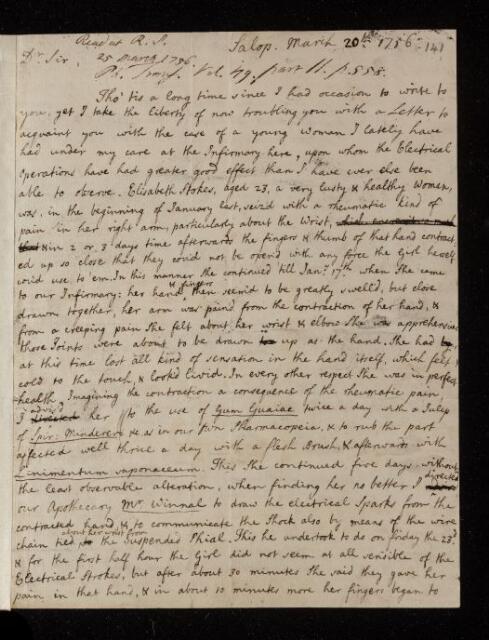 Read at R. S. Salop. March 20th. 1756. 141
Dr. Sir, 25 March 1756.
Ph. Trans. Vol. 49. part II. p. 558.
Tho' tis a long time since I had occasion to write to
you, yet I take the liberty of now troubling you with a Letter to
acquaint you with the case of a young Woman I lately have
had under my care at the Infirmary here, upon whom the Electrical
operations have had greater good effect than I have ever else been
able to observe. Elisabeth Stokes, aged 23, a very lusty & healthy Women,
was, in the beginning of January last, seiz'd with a rheumatic kind of
pain in her right arm, particularly about the Wrist,
& in 2 or 3 days time afterwards the fingers & thumb of that hand contract
ed up so close that they could not be opend with any force the Girl herself
could use to 'em. In this manner she continued till Jany. 17th when She came
to our Infirmary: her hand & fingers then seem'd to be greatly swell'd, but close
drawn together, her arm was pain'd from the contraction of her hand, &
from a creeping pain She felt about her wrist & elbow She was apprehensive
those Joints were about to be drawn up as the hand. She had
at this time lost all kind of sensation in the hand itself, which felt
cold to the touch, & look'd livid. In every other respect She was in perfect
health. Imagining the contraction a consequence of the rheumatic pain,
I advis'd her to the use of Gum Guaiac twice a day with a Julep
of Spir: Mindereri &c as in our own Pharmacopeia, & to rub the part
affected well thrice a day with a flesh Brush, & afterwards with
Linimentum vaponaceum. This She continued five days without
the least observable alteration, when finding her no better, I directed
our Apothecary Mr. Winnal to draw the electrical Sparks from the
contracted hand, & to communicate the Shock also by means of the wire
chain tied about her wrist from the Suspended Phial. This he undertook to do on friday the 23d
& for the first half hour the Girl did not seem at all sensible of the
Electrical Strokes, but after about 30 minutes She said they gave her
pain in that hand, & in about 10 minutes more her fingers began to